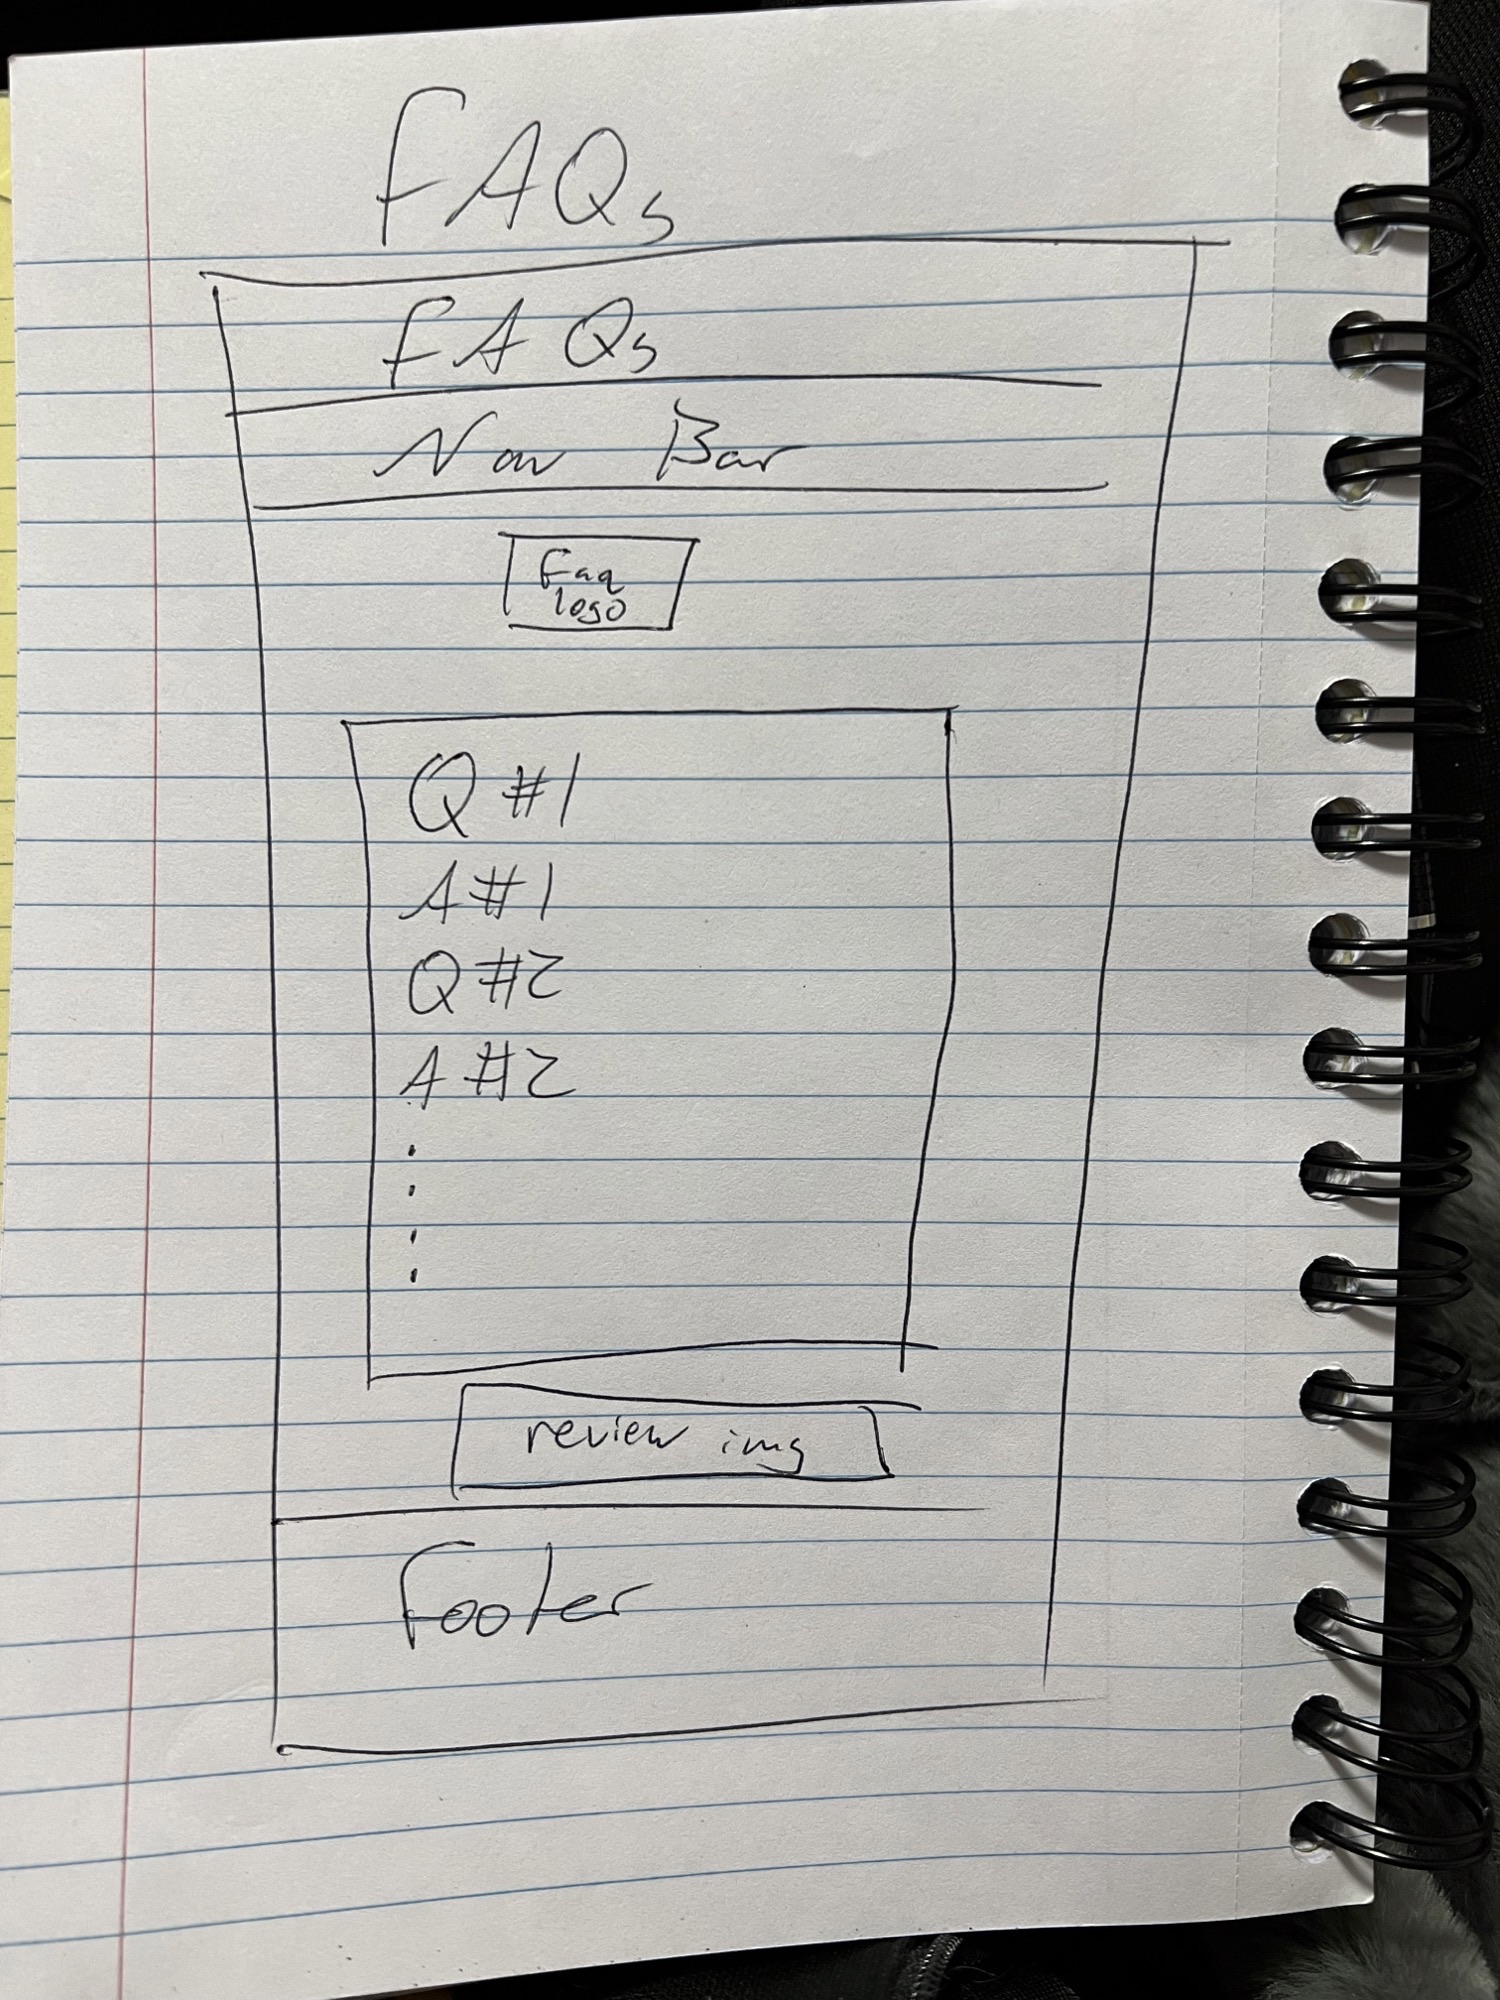 FAQs
FAQs
Nav Bar
Faq
logo
Q #1
A #1
Q #2
A #2
review img
Footer